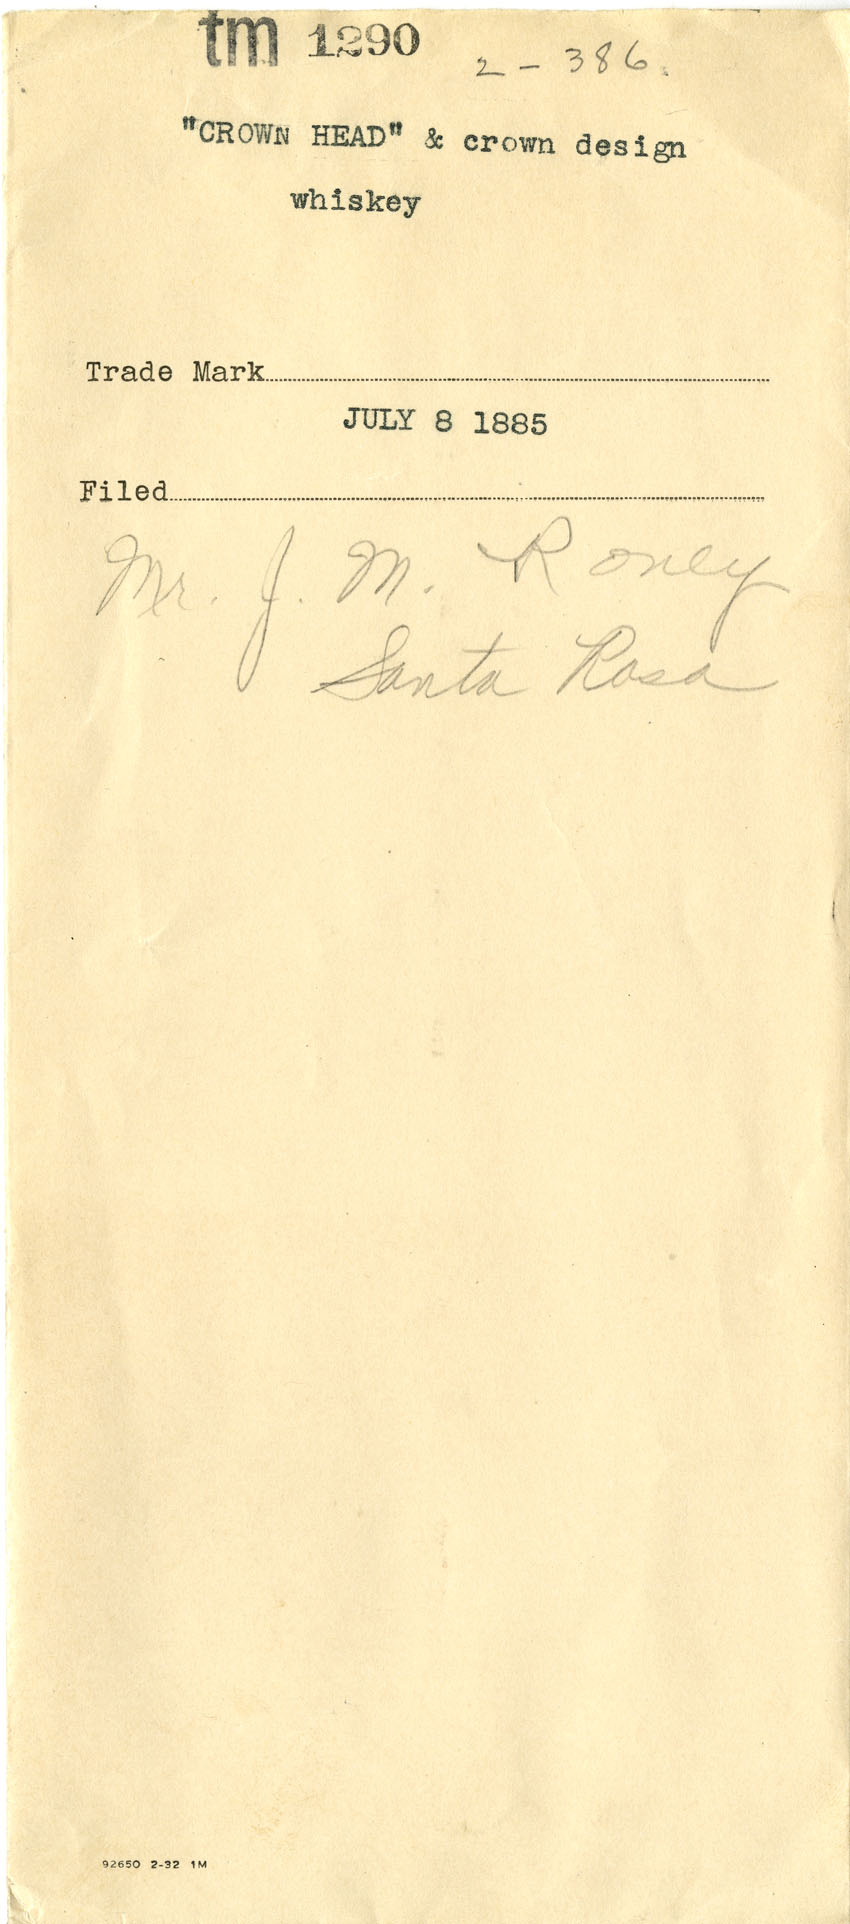 tm 1290 2-386.
"CROWN HEAD" & crown design
whiskey
Trade Mark
JULY 8 1885
Filed
Mr. J. M. Roney
Santa Rosa
92650 2-32 1M